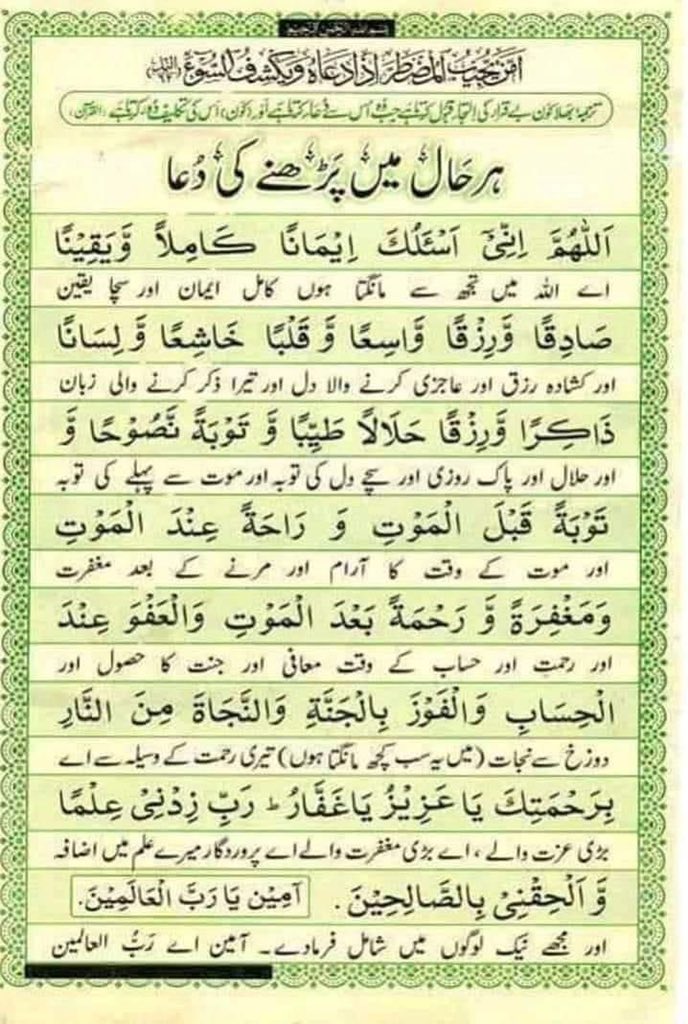 بسم اللہ الرحمن الرحیم
اَمَّنْ يُّجِيْبُ الْمُضْطَرَّ اِذَا دَعَاهُ وَيَكْشِفُ السُّوْٓءَ
ترجمہ: بھلا کون بے قرار کی التجا قبول کرتا ہے جب وہ اُس سے دُعا کرتا ہے اور (کون) اُس کی تکلیف دُور کرتا ہے (القرآن)
ہر حَال میں پَڑھنے کی دُعا
اَللّٰهُمَّ اِنِّیْۤ اَسْئَلُكَ اِيْمَانًا كَامِلاً وَّيَقِيْنًا
اے اللہ میں تجھ سے مانگتا ہوں کامل ایمان اور سچا یقین
صَادِقًا وَّرِزْقًا وَّاسِعًا وَّ قَلْبًا خَاشِعًا وَّ لِسَانًا
اور کشادہ رزق اور عاجزی کرنے والا دل اور تیرا ذکر کرنے والی زبان
ذَاكِرًا وَّرِزْقًا حَلَالاً طَيِّبًا وَّ تَوْبَةً نَّصُوْحًا وَّ
اور حلال اور پاک روزی اور سچے دل کی توبہ اور موت سے پہلے کی توبہ
تَوْبَةً قَبْلَ الْمَوْتِ وَ رَاحَةً عِنْدَ الْمَوْتِ
اور موت کے وقت کا آرام اور مرنے کے بعد مغفرت
وَمَغْفِرَةً وَّ رَحْمَةً بَعْدَ الْمَوْتِ وَالْعَفْوَ عِنْدَ
اور رحمت اور حساب کے وقت معافی اور جنت کا حصول اور
الْحِسَابِ وَالْفَوْزَ بِالْجَنَّةِ وَالنَّجَاةَ مِنَ النَّارِ
دوزخ سے نجات (میں یہ سب کچھ مانگتا ہوں) تیری رحمت کے وسیلہ سے اے
بِرَحْمَتِكَ يَا عَزِيْزُ يَا غَفَّارُ ؕ رَبِّ زِدْنِیْ عِلْمًا
بڑی عزت والے ، اے بڑی مغفرت والے اے پروردگار میرے علم میں اضافہ
وَّ اَلْحِقْنِیْ بِالصَّالِحِيْنَ. آمِيْن يَا رَبَّ الْعَالَمِيْنَ.
اور مجھے نیک لوگوں میں شامل فرمادے۔ آمین اے رَبُّ العالمین